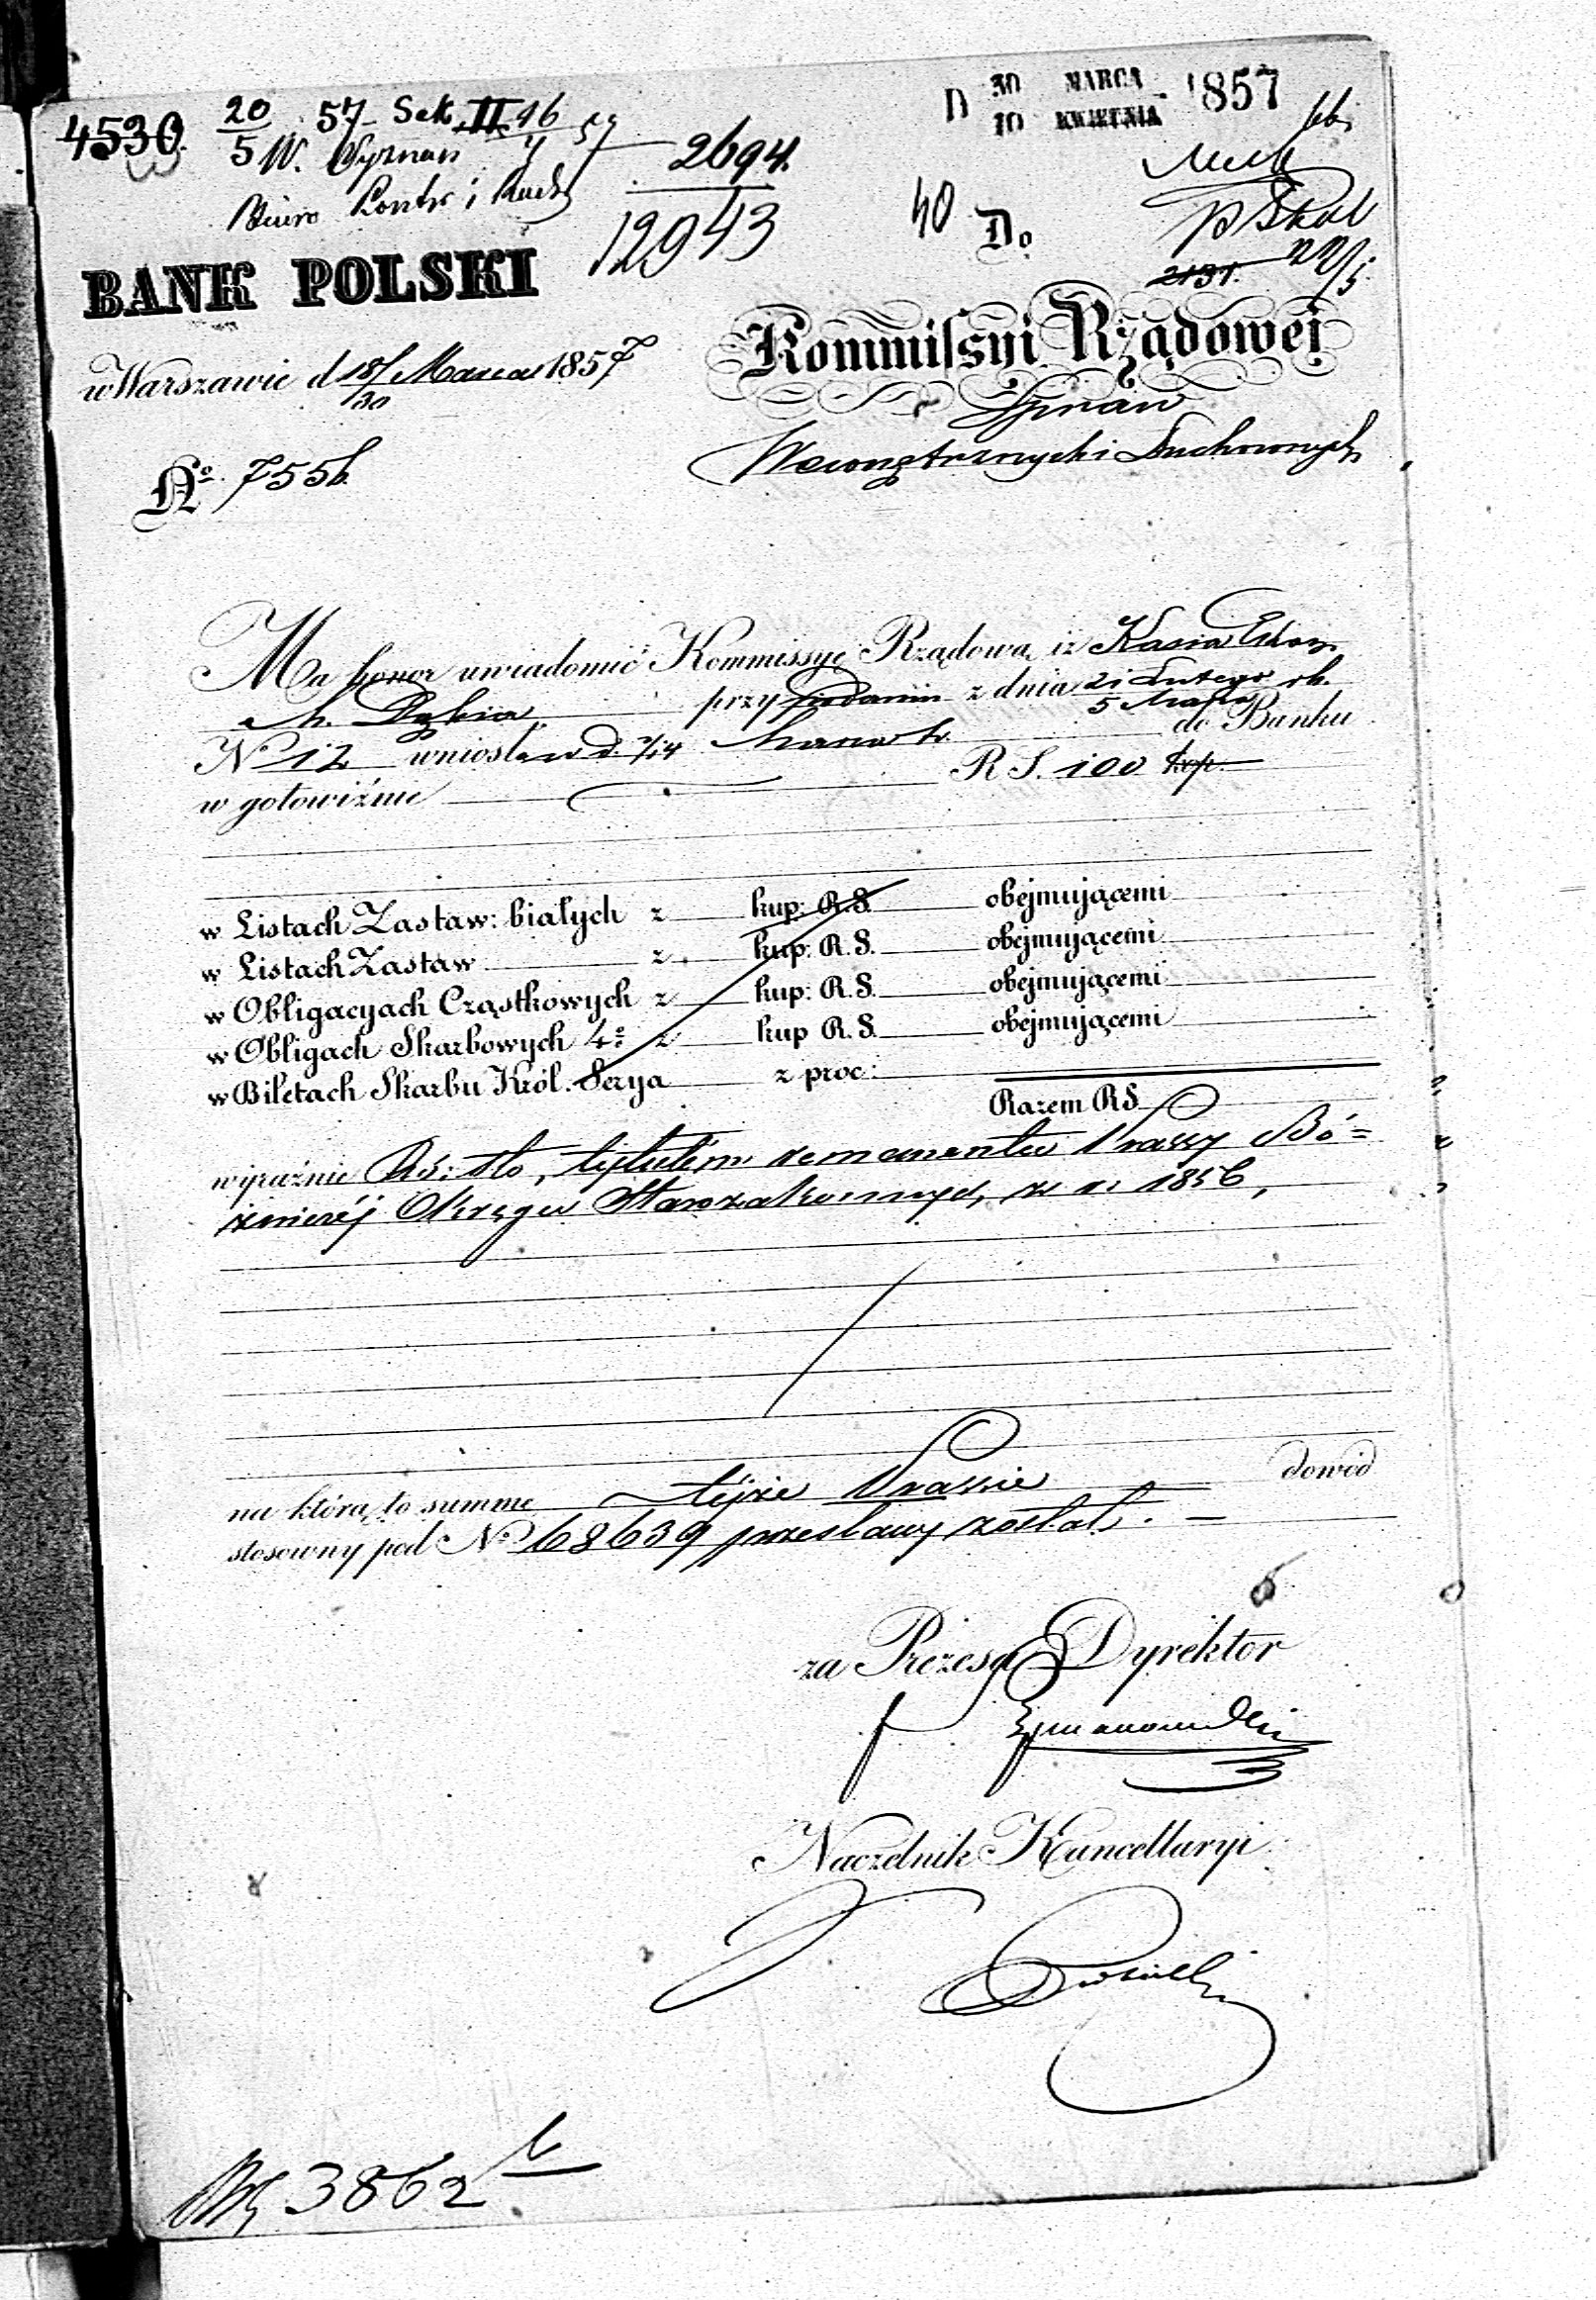 4530. 20/5 57 Sek. II 16/4 57 2694.
W. Wyznań
Biuro Kontr i Rach
12943
D 30 MARCA / 10 KWIETNIA 1857
40 Do
2131. 22/5
BANK POLSKI
Kommissyi Rządowej
w Warszawie d 18/30 Marca 1857
Spraw
Wewnętrznych i Duchownych
No. 7556.
Ma honor uwiadomić Kommissyę Rządową, iż Kassa Ekon:
m. przy podaniu z dnia 21 Lutego / 5 Marca rb.
No 12 wniosła w d. 2/14 Marca b. do Banku
w gotowiźnie R S. 100 kop.
w Listach Zastaw: białych z kup: R.S. obejmującemi
w Listach Zastaw z kup: R.S. obejmującemi
w Obligacyach Cząstkowych z kup: R.S. obejmującemi
w Obligach Skarbowych 4% z kup R.S. obejmującemi
w Biletach Skarbu Król. Serya z proc:
Razem RS
wyraźnie Rs: sto, tytułem remanentu Kassy Bó=
żniczéj Okręgu Starozakonnych, z r. 1856,
na którą to summę téjże Kassie dowód
stosowny pod No 68639 przesłany został.
za Prezesa Dyrektor
Naczelnik Kancellaryi
3862